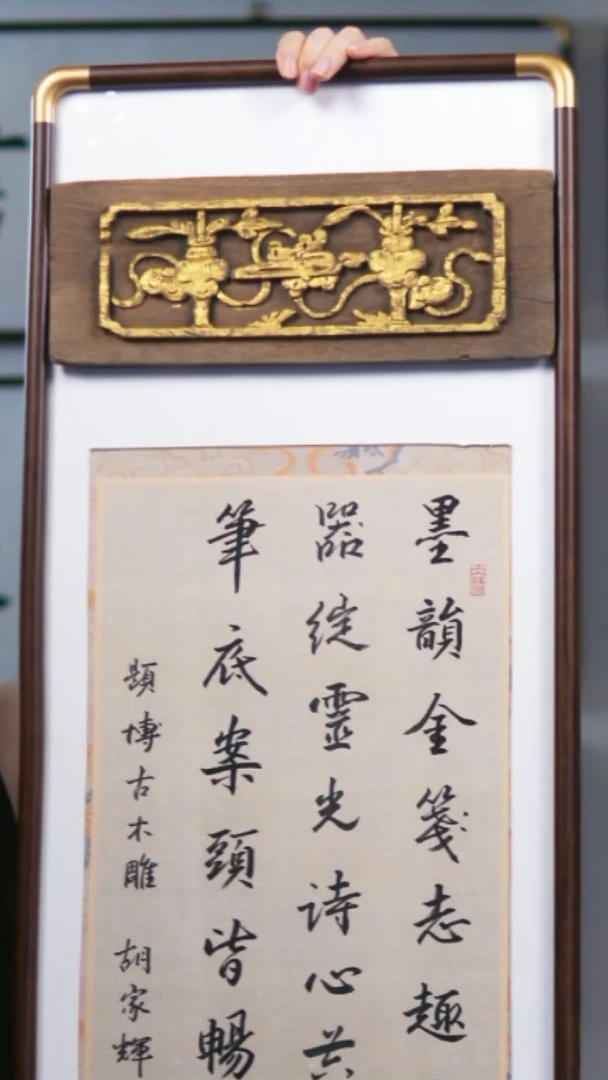 墨韻金箋志趣
器綻靈光詩心共
筆底案頭皆暢
題博古木雕 胡家輝